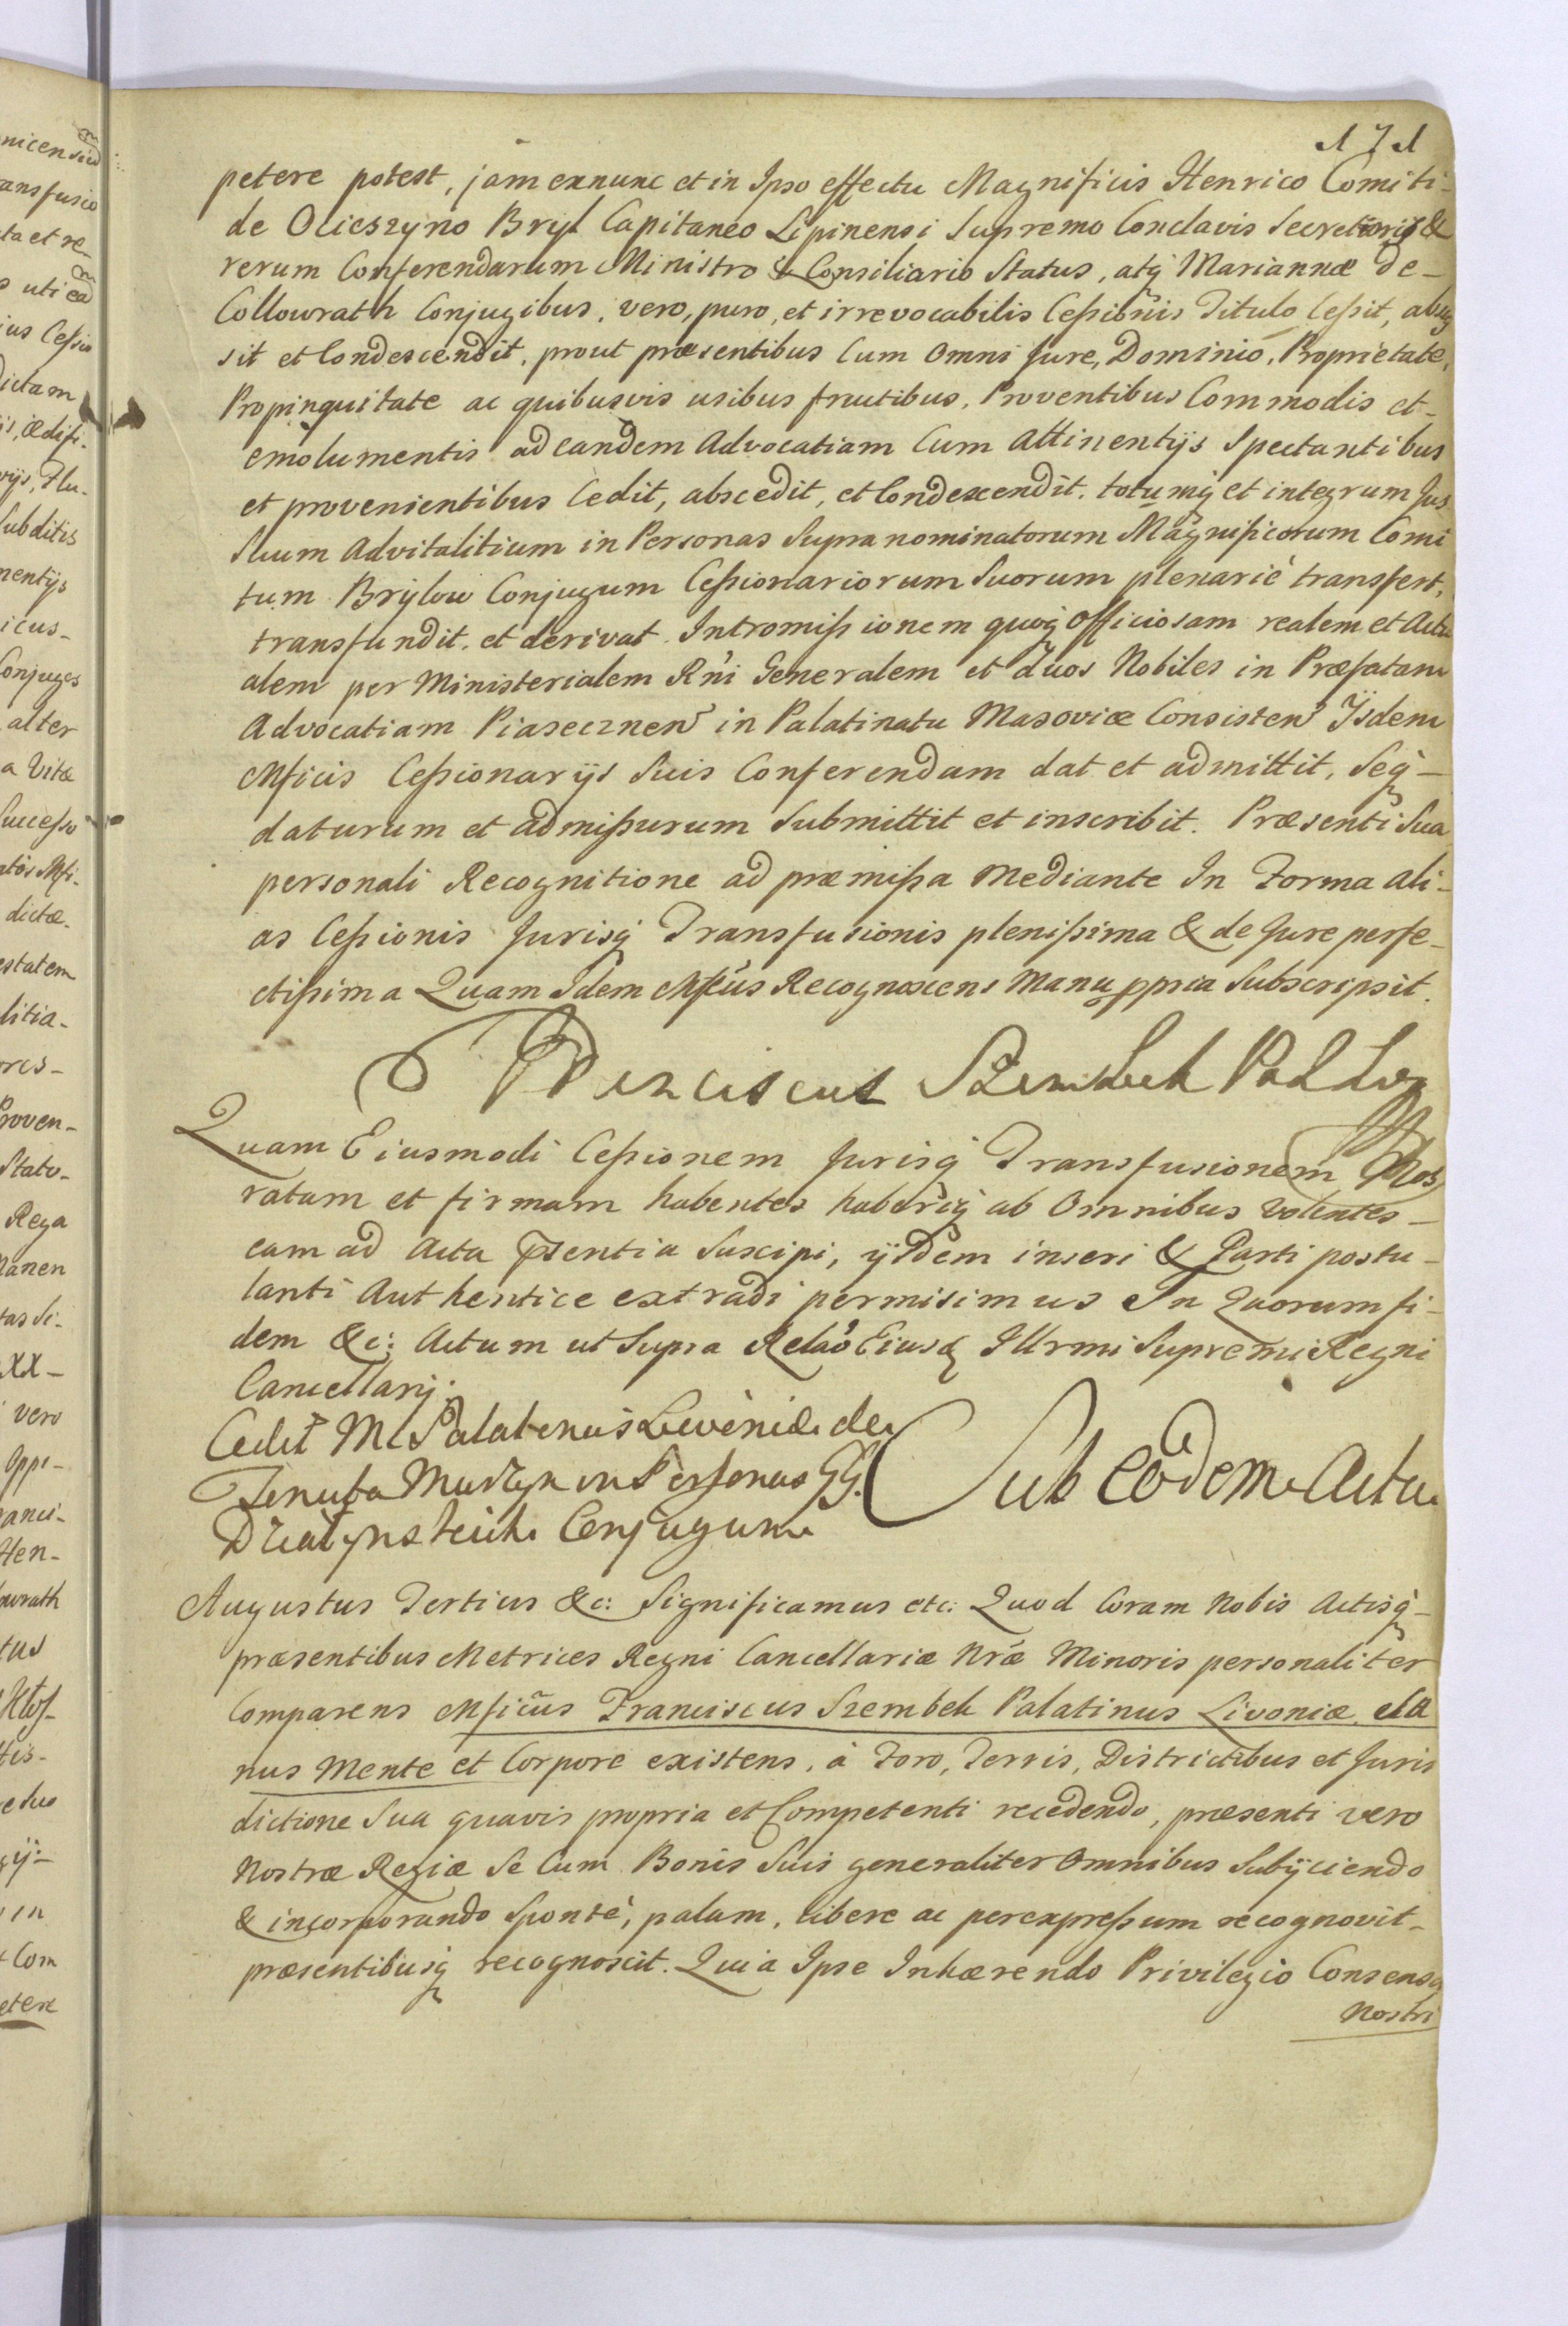 171
petere potest, jam exnunc et in Ipso effectu Magnificis Henrico Comiti-
de Ocieszyno Bryl Capitaneo Lipinensi Supremo Conclavis Secretario &
rerum Conferendarum Ministro & Consiliario Status, atq Mariannæ de-
Collowrath Conjugibus, vero, puro, et irrevocabilis Cessionis Titulo Cessit,
sit et Condescendit, prout præsentibus Cum Omni Jure, Dominio, Proprietate,
Propinquitate ac quibusvis usibus fructibus, Proventibus Commodis et-
emolumentis ad eandem Advocatiam Cum Attinentijs Spectantibus
et provenientibus Cedit, abscedit, et Condescendit, totumq et integrum Jus
Suum Advitalitium in Personas Supranominatorum Magnificorum Comi
tum Brylow Conjugum Cessionariorum Suorum plenariè transfert,
transfundit, et derivat. Intromissionem quoq Officiosam realem et Actu
alem per Ministerialem Rni Generalem et duos Nobiles in Præfatam
Advocatiam Piasecznen in Palatinatu Masoviæ Consisten Ijsdem
Mficis Cessionarijs Suis Conferendam dat et admittit, Seq-
daturum et admissurum Submittit et inscribit. Præsenti Sua
personali Recognitione ad præmissa Mediante In Forma ali-
as Cessionis Jurisq Transfusionis plenissima & de Jure perfe-
ctissima Quam Idem Mficus Recognoscens Manu ppria Subscripsit.
Franciscus Szembek
Quam Eiusmodi Cessionem Jurisq Transfusionem Nos
ratam et firmam habentes haberiq ab Omnibus Volentes-
eam ad Acta psentia Suscipi, ijsdem inseri & Parti postu-
lanti Authentice extradi permisimus In Quorum fi-
dem &c: Actum ut Supra Relao Eiusd Illrmi Supremi Regni
Cancellarij.
Cedit M Palatinus Livoniæ de
Tenuta in Personas GG.
Conjugum
Sub Eodem Actu
Augustus Tertius &c: Significamus etc: Quod Coram Nobis Actisq-
præsentibus Metrices Regni Cancellariæ Nræ Minoris personaliter
Comparens Mficus Franciscus Szembek Palatinus Livoniæ Sa
nus Mente et Corpore existens, à Foro, Terris, Districtibus et Juris
dictione Sua quavis propria et Competenti recedendo, præsenti vero
Nostræ Regiæ Se Cum Bonis Suis generaliter Omnibus Subijciendo
& incorporando Spontè, palam, libere ac perexpressum recognovit-
præsentibusq recognoscit. Quia Ipse Inhærendo Privilegio Consensu
Nostri